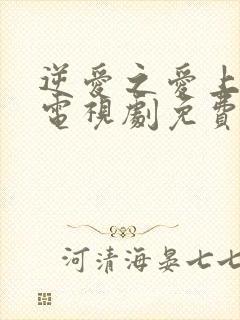 逆愛之愛上
電視劇免費
河清海晏七七